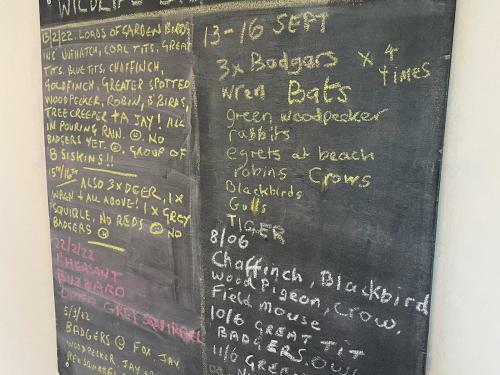 WILDLIFE
13/2/22. LOADS OF GARDEN BIRDS
INC NUTHATCH, COAL TITS, GREAT
TITS BLUE TITS, CHAFFINCH,
GOLDFINCH, GREATER SPOTTED
WOODPECKER, ROBIN, B'BIRDS,
TREECREEPER + A JAY! ALL
IN POURING RAIN. NO
BADGERS YET. GROUP OF
8 SISKINS!!
ALSO 3 x DEER, 1 x
WREN + ALL ABOVE! 1 x GREY
SQUIRLE, NO REDS NO
BADGERS
22/2/22
PHEASANT
BUZZARD
GREY SQUIRREL
5/3/22
BADGERS FOX, JAY
WOODPECKER, JAY
RED SQUIRREL
13-16 SEPT
3x Badgars x 4
times
wren Bats
green woodpecker
rabbits
egrets at beach
robins Crows
Blackbirds
Gulls
TIGER
8/06
Chaffinch, Blackbird
Wood Pigeon, Crow,
Field mouse
10/6 GREAT TIT
BADGERS, OWL
11/6